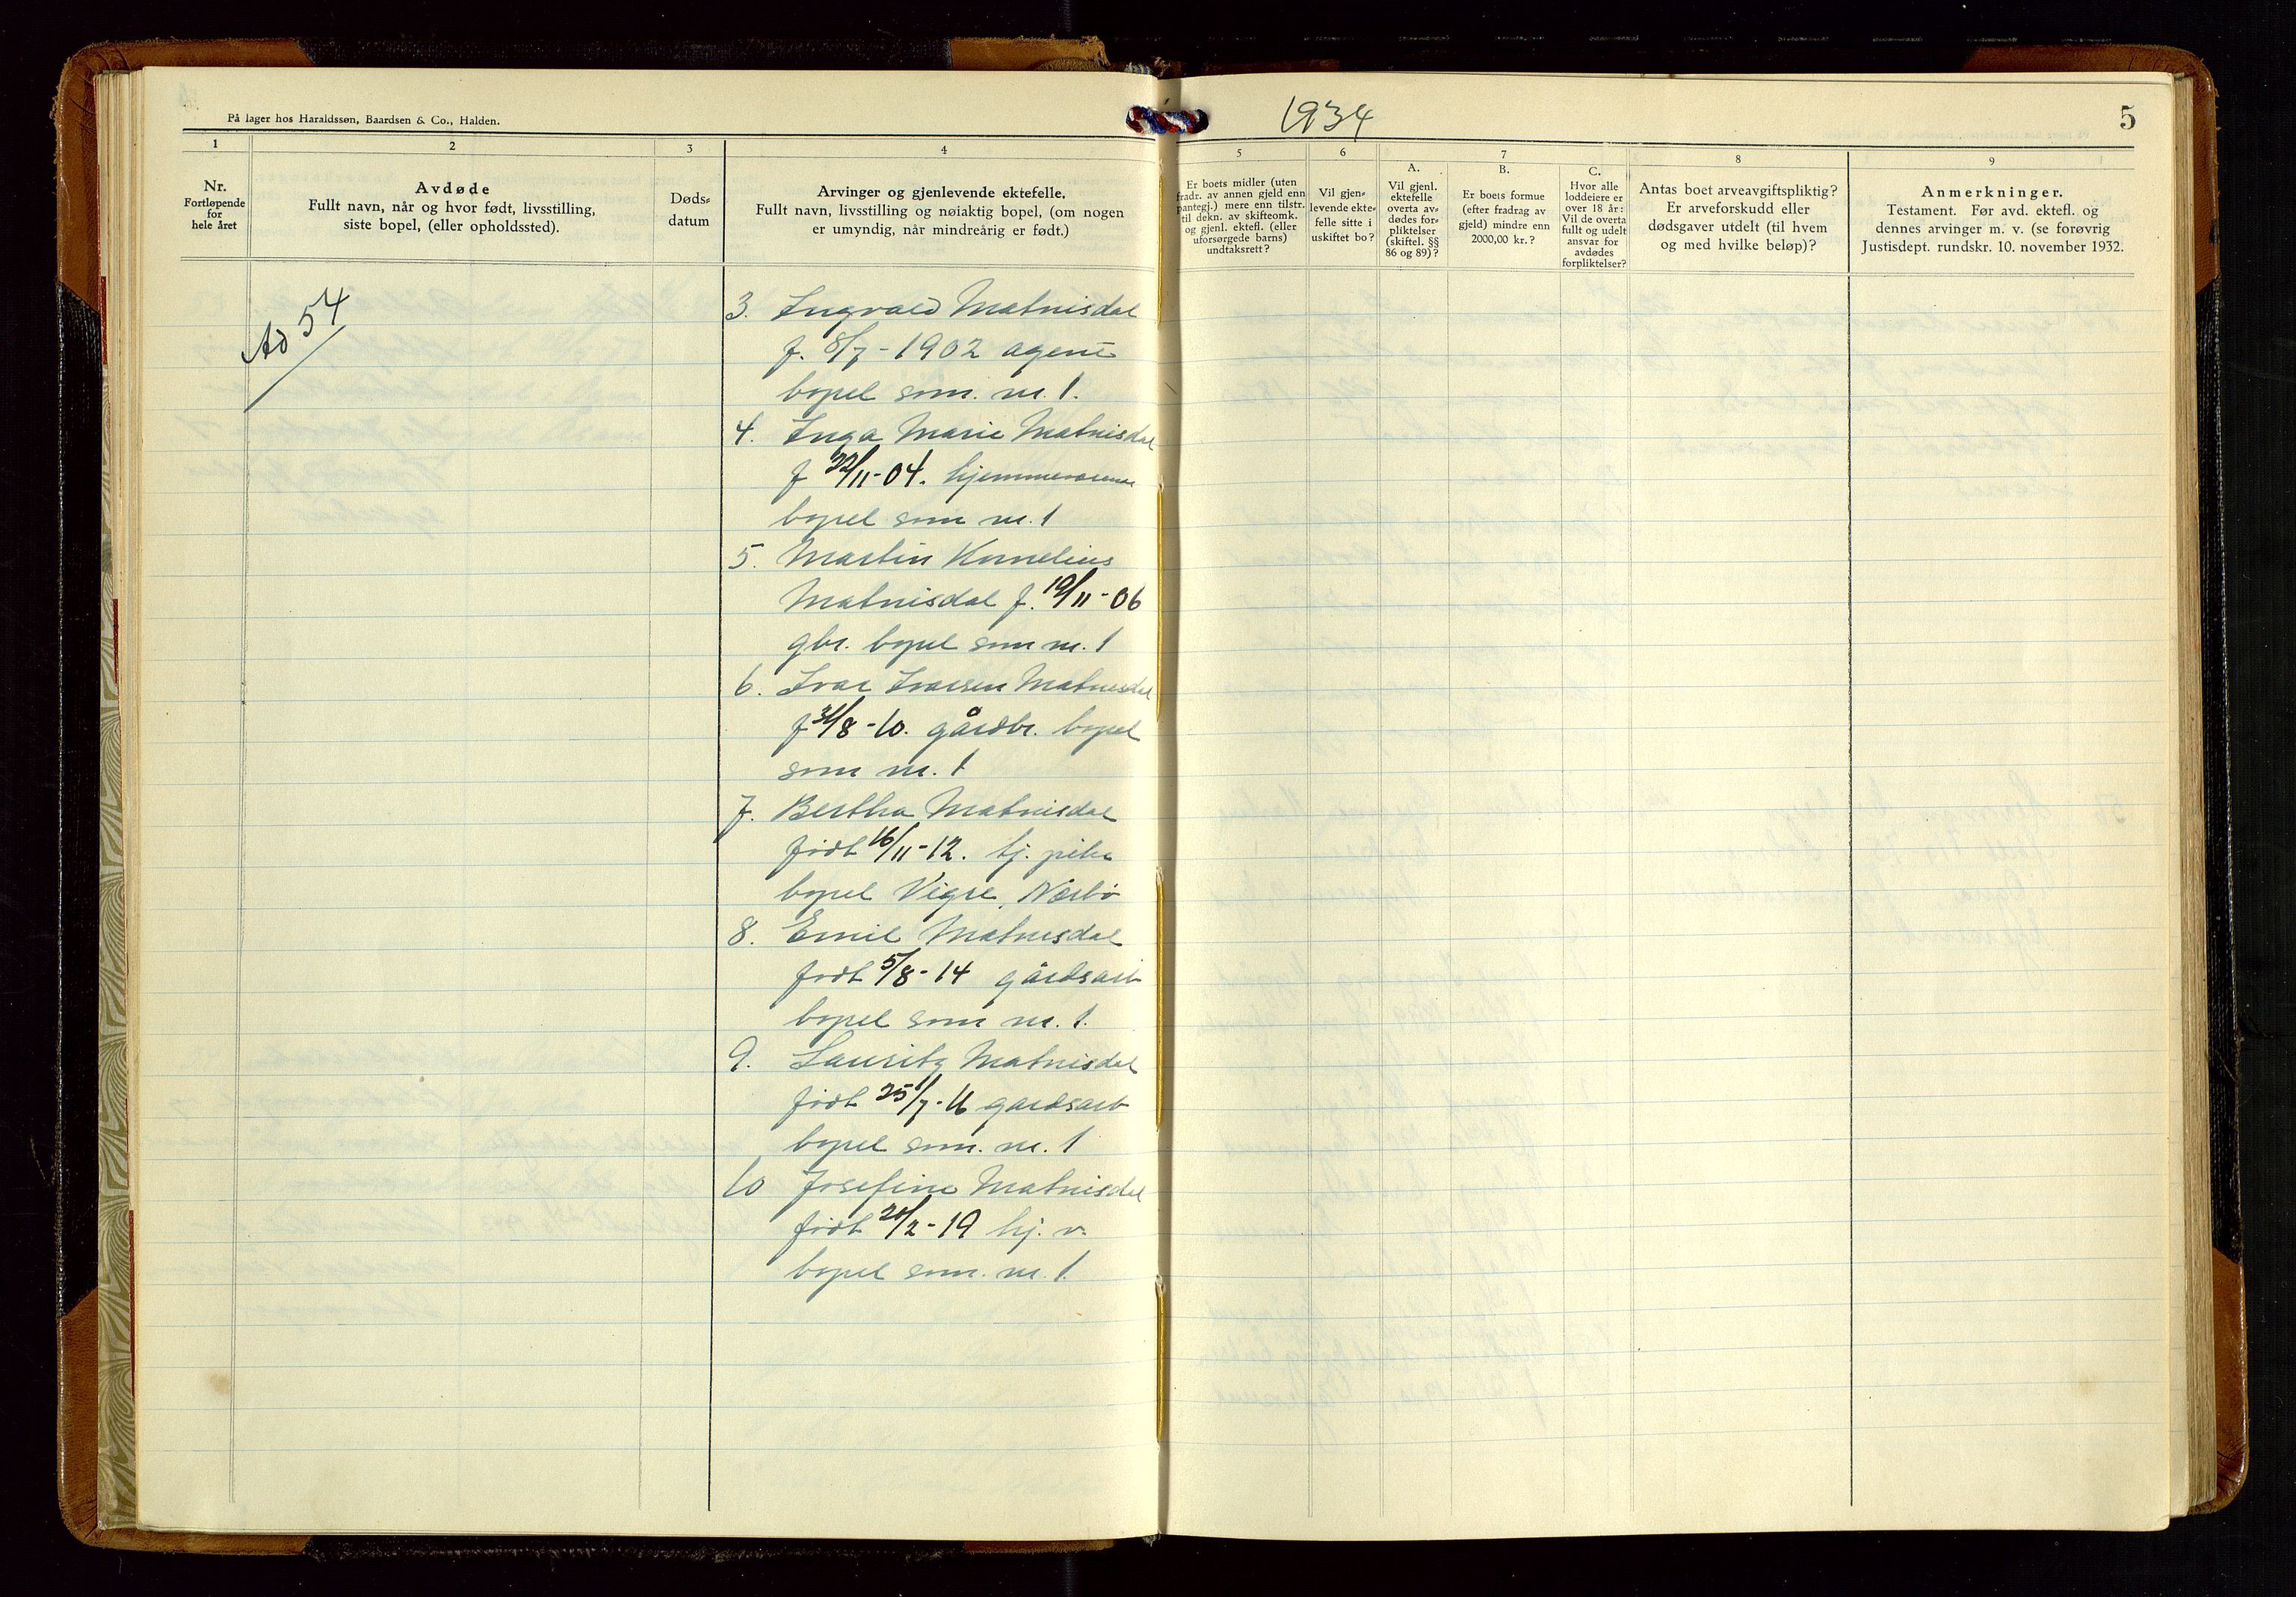 På lager hos Haraldssøn, Baardsen & Co., Halden.
1934
5
1
2
3
4
5
6
7
8
9
Nr.
Fortløpende
for
hele året
Avdøde
Fullt navn, når og hvor født, livsstilling,
siste bopel, (eller opholdssted).
Døds-
datum
Arvinger og gjenlevende ektefelle.
Fullt navn, livsstilling og nøiaktig bopel, (om nogen
er umyndig, når mindreårig er født.)
Er boets midler (uten
fradr. av annen gjeld enn
pantegj.) mere enn tilstr.
til dekn. av skifteomk.
og gjenl. ektefl. (eller
uforsørgede barns)
undtaksrett?
Vil gjen-
levende ekte-
felle sitte i
uskiftet bo?
A.
Vil gjenl.
ektefelle
overta av-
dødes for-
pliktelser
(skiftel. §§
86 og 89)?
B.
Er boets formue
(efter fradrag av
gjeld) mindre enn
2000,00 kr.?
C.
Hvor alle
loddeiere er
over 18 år:
Vil de overta
fullt og udelt
ansvar for
avdødes
forpliktelser?
Antas boet arveavgiftspliktig?
Er arveforskudd eller
dødsgaver utdelt (til hvem
og med hvilke beløp)?
Anmerkninger.
Testament. Før avd. ektefl. og
dennes arvinger m. v. (se forøvrig
Justisdept. rundskr. 10. november 1932.
Ad 54
3. Ingvald Matnisdal
f. 8/7-1902 agent
bopel som. nr. 1.
4. Inga Marie Matnisdal
f 22/11-04. hjemmeværende
bopel som nr. 1
5. Martin Kornelius
Matnisdal f. 19/11-06
gbr. bopel som nr. 1
6. Ivar Ivarsen Matnisdal
f 31/8-10. gårdbr. bopel
som nr. 1
7. Bertha Matnisdal
født 16/11-12. tj. pike
bopel Vigre, Nærbø
8. Emil Matnisdal
født 5/8-14 gårdsarb
bopel som nr. 1.
9. Lauritz Matnisdal
født 25/7-16 gardsarb
bopel som. nr. 1
10 Josefine Matnisdal
født 20/2-19 hj. v.
bopel som. nr. 1.